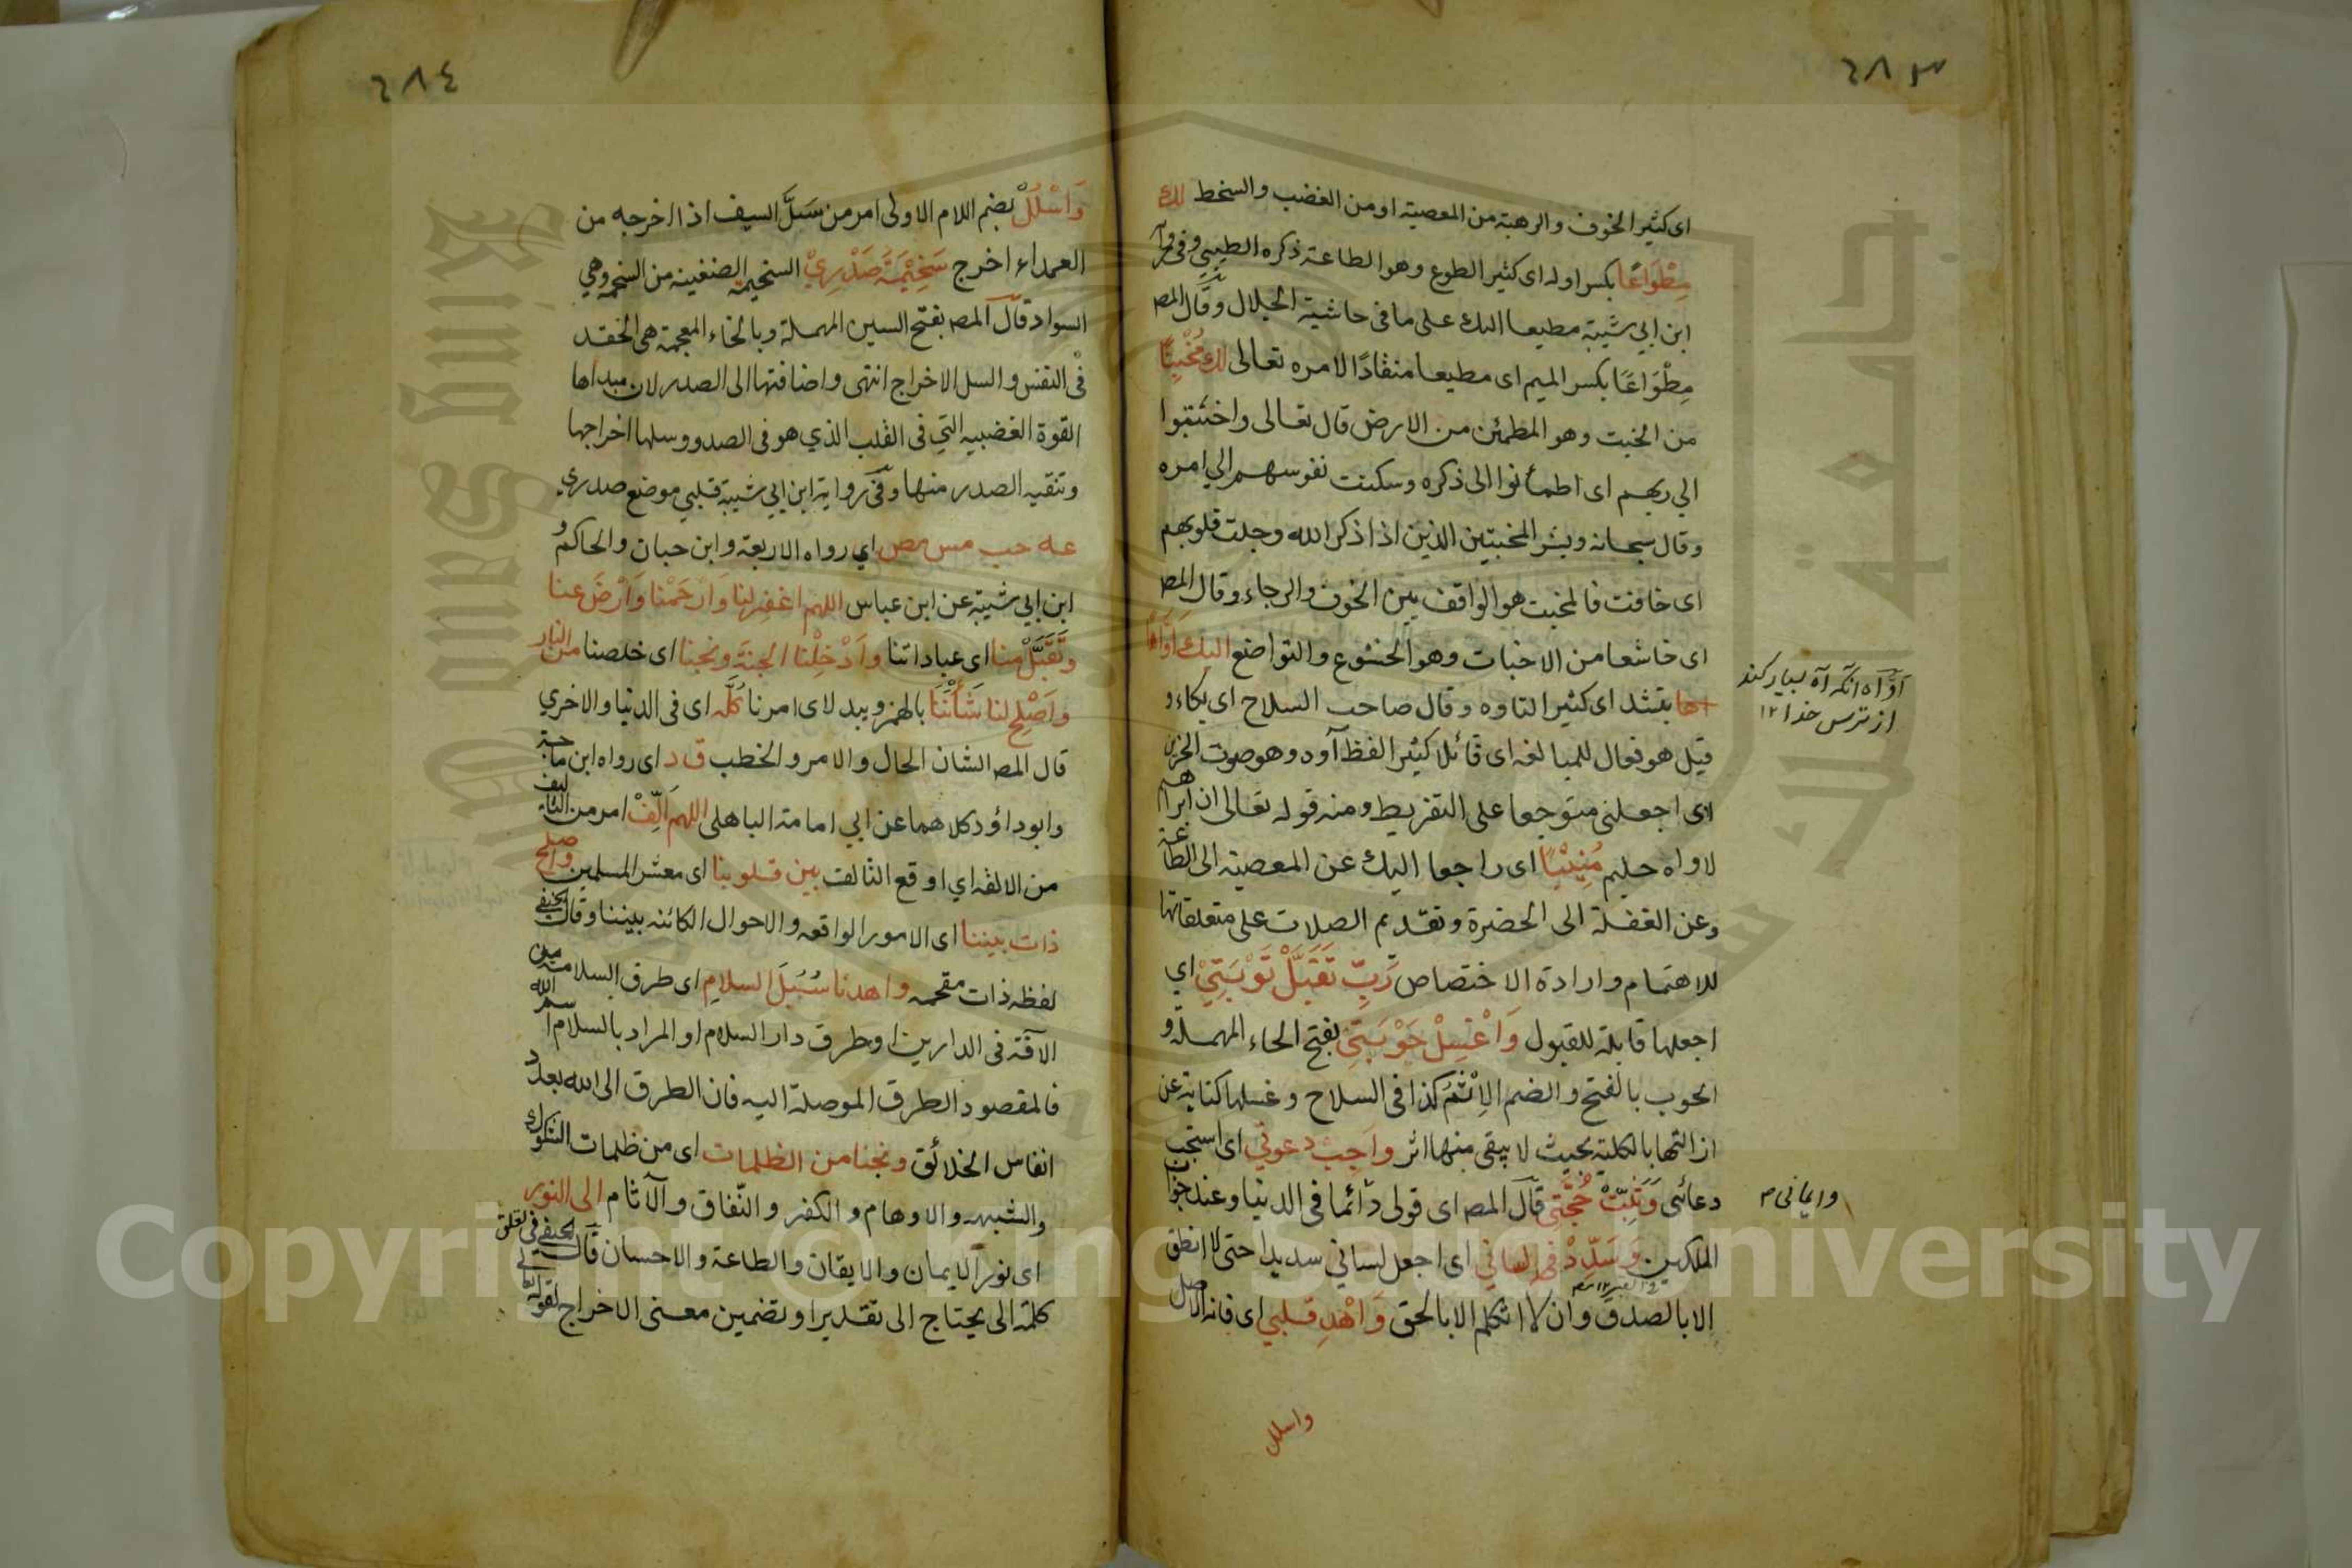 ٦٨٣
اى كثير الخوف والرهبة من المعصية او من الغضب والسخط لك
مِطْوَاعًا بكسر اوله اى كثير الطوع وهو الطاعة ذكره الطيبي وفى رواية
ابن ابي شيبة مطيعا اليك على ما فى حاشية الجلال وقال المص
مِطْوَاعًا بكسر الميم اى مطيعا منقادًا لامره تعالى لك مُخْبِتًا
من الخبت وهو المطمئن من الارض قال تعالى واخبتوا
الي ربهم اى اطمأنوا الى ذكره وسكنت نفوسهم الي امره
وقال سبحانه وبشر المخبتين الذين اذا ذكر الله وجلت قلوبهم
اى خافت فالمخبت هو الواقف بين الخوف والرجاء وقال المص
اى خاشعا من الاخبات وهو الخشوع والتواضع اليك اَوَّاهًا
بتشد اى كثير التاوه وقال صاحب السلاح اى بكاء و
قيل هو فعال للمبالغه اى قائلا كثير الفظ آوه وهو صوت الحزين
اى اجعلنى متوجعا على التفريط ومنه قوله تعالى ان ابراهيم
لاواه حليم مُنِيْبًا اى راجعا اليك عن المعصيه الى الطاعة
وعن الغفلة الى الحضرة وتقديم الصلات على متعلقاتها
للاهتمام وارادة الاختصاص رَبِّ تَقَبَّلْ تَوْبَتِيْ اي
اجعلها قابلة للقبول وَاغْسِلْ حَوْبَتِى بفتح الحاء المهملة و
الحوب بالفتح والضم الاِثْمُ كذا فى السلاح وغسلها كناية عن
ازالتها بالكلية بحيث لا يبقى منها اثر واَجِبْ دعوتي اى استجب
دعائى وَثَبِّتْ حُجَّتِى قال المص اى قولى دائما فى الدنيا وعند جواب
الملكين وَسَدِّدْ لسانى اى اجعل لساني سديدا حتى لا انطق
الا بالصدق وان لا اتكلم الا بالحق وَاهْدِ قلبي اى فانه الاصل
واسلل
اَوَّاه انكه آه بسيار كند
از ترس خدا ١٢
وايمانى م
٦٨٤
وَاسْلُلْ بضم اللام الاولى امر من سَلَّ السيف اذا اخرجه من
الغمد اى اخرج سَخِيْمَةَ صَدْرِيْ السخيمة الضغينه من السخمه وهي
السواد قال المص بفتح السين المهملة وبالخاء المعجمة هى الحقد
فى النفس والسل الاخراج انتهى واضافتها الى الصدر لان مبداها
القوة الغضبيه التي فى القلب الذي هو فى الصدر وسلها اخراجها
وتنقيه الصدر منها وفى رواية ابن ابي شيبة قلبي موضع صدري
عه حب مس مص اي رواه الاربعة وابن حبان والحاكم و
ابن ابي شيبة عن ابن عباس اللهم اغفر لنا وَارْحَمْنا وَارْضَ عنا
وتَقَبَّلْ منا اى عباداتنا واَدْخِلْنا الجنة ونجنا اى خلصنا من النار
واَصْلِح لنا شَأْنَنَا بالهمز ويبدل اى امرنا كُلَّه اى فى الدنيا والاخري
قال المص الشان الحال والامر والخطب ق د اى رواه ابن ماجة
وابو داؤد كلاهما عن ابي امامة الباهلى اللهم اَلِّفْ امر من التاليف
من الالفه اي اوقع التالف بين قلوبنا اى معشر المسلمين واصلح
ذات بيننا اى الامور الواقعه والاحوال الكائنه بيننا وقال الحنفى
لفظه ذات مقحمه واهدنا سُبُلَ السلام اى طرق السلامة من
الآفة فى الدارين او طرق دار السلام او المراد بالسلام اسم الله
فالمقصود الطرق الموصلة اليه فان الطرق الى الله بعدد
انفاس الخلائق ونجنا من الظلمات اى من ظلمات الشكوك
والشبهه والاوهام والكفر والنفاق والآثام الى النور
اى نور الايمان والايقان والطاعة والاحسان قال الحنفى فى تعلق
كلمة الى يحتاج الى تقدير او تضمين معنى الاخراج لقوله تعالى
جامعة الملك سعود
King Saud University
Copyright © King Saud University